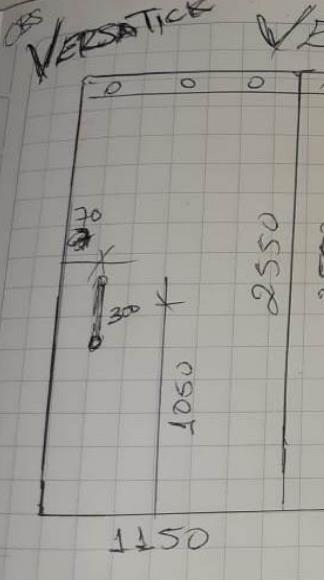 OBS
VERSATICK VE
70
300
2550
1050
1150